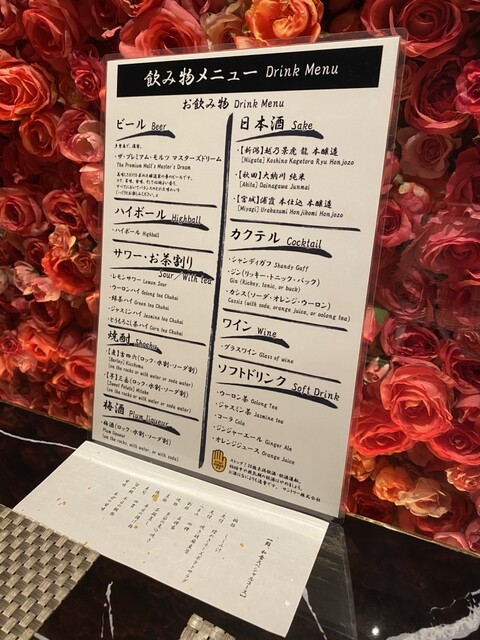 飲み物メニュー Drink Menu
お飲み物 Drink Menu
ビール Beer
・ザ・プレミアム・モルツ マスターズドリーム
The Premium Malt's Master's Dream
ハイボール Highball
・ハイボール Highball
サワー・お茶割り
Sour / With tea
・レモンサワー Lemon Sour
・ウーロンハイ Oolong tea Chuhai
・緑茶ハイ Green tea Chuhai
・ジャスミンハイ Jasmine tea Chuhai
・とうもろこし茶ハイ Corn tea Chuhai
焼酎 Shochu
・【麦】吉四六(ロック・水割・ソーダ割)
[Barley] Kicchomu
(on the rocks or with water or soda water)
・【芋】三岳(ロック・水割・ソーダ割)
[Sweet Potato] Mitake
(on the rocks or with water or soda water)
梅酒 Plum liqueur
・梅酒(ロック・水割・ソーダ割)
Plum liqueur
(on the rocks, with water, or with soda)
日本酒 Sake
・【新潟】越乃景虎 龍 本醸造
[Niigata] Koshino Kagetora Ryu Honjozo
・【秋田】大納川 純米
[Akita] Dainagawa Junmai
・【宮城】浦霞 本仕込 本醸造
[Miyagi] Urakasumi Honjikomi Honjozo
カクテル Cocktail
・シャンディガフ Shandy Gaff
・ジン(リッキー・トニック・バック)
Gin (Rickey, tonic, or buck)
・カシス(ソーダ・オレンジ・ウーロン)
Cassis (with soda, orange juice, or oolong tea)
ワイン Wine
・グラスワイン Glass of wine
ソフトドリンク Soft Drink
・ウーロン茶 Oolong tea
・ジャスミン茶 Jasmine tea
・コーラ Cola
・ジンジャーエール Ginger Ale
・オレンジジュース Orange Juice
ストップ！20歳未満飲酒・飲酒運転。
妊娠中や授乳期の飲酒はやめましょう。
お酒はなによりも適量です。 サントリー株式会社